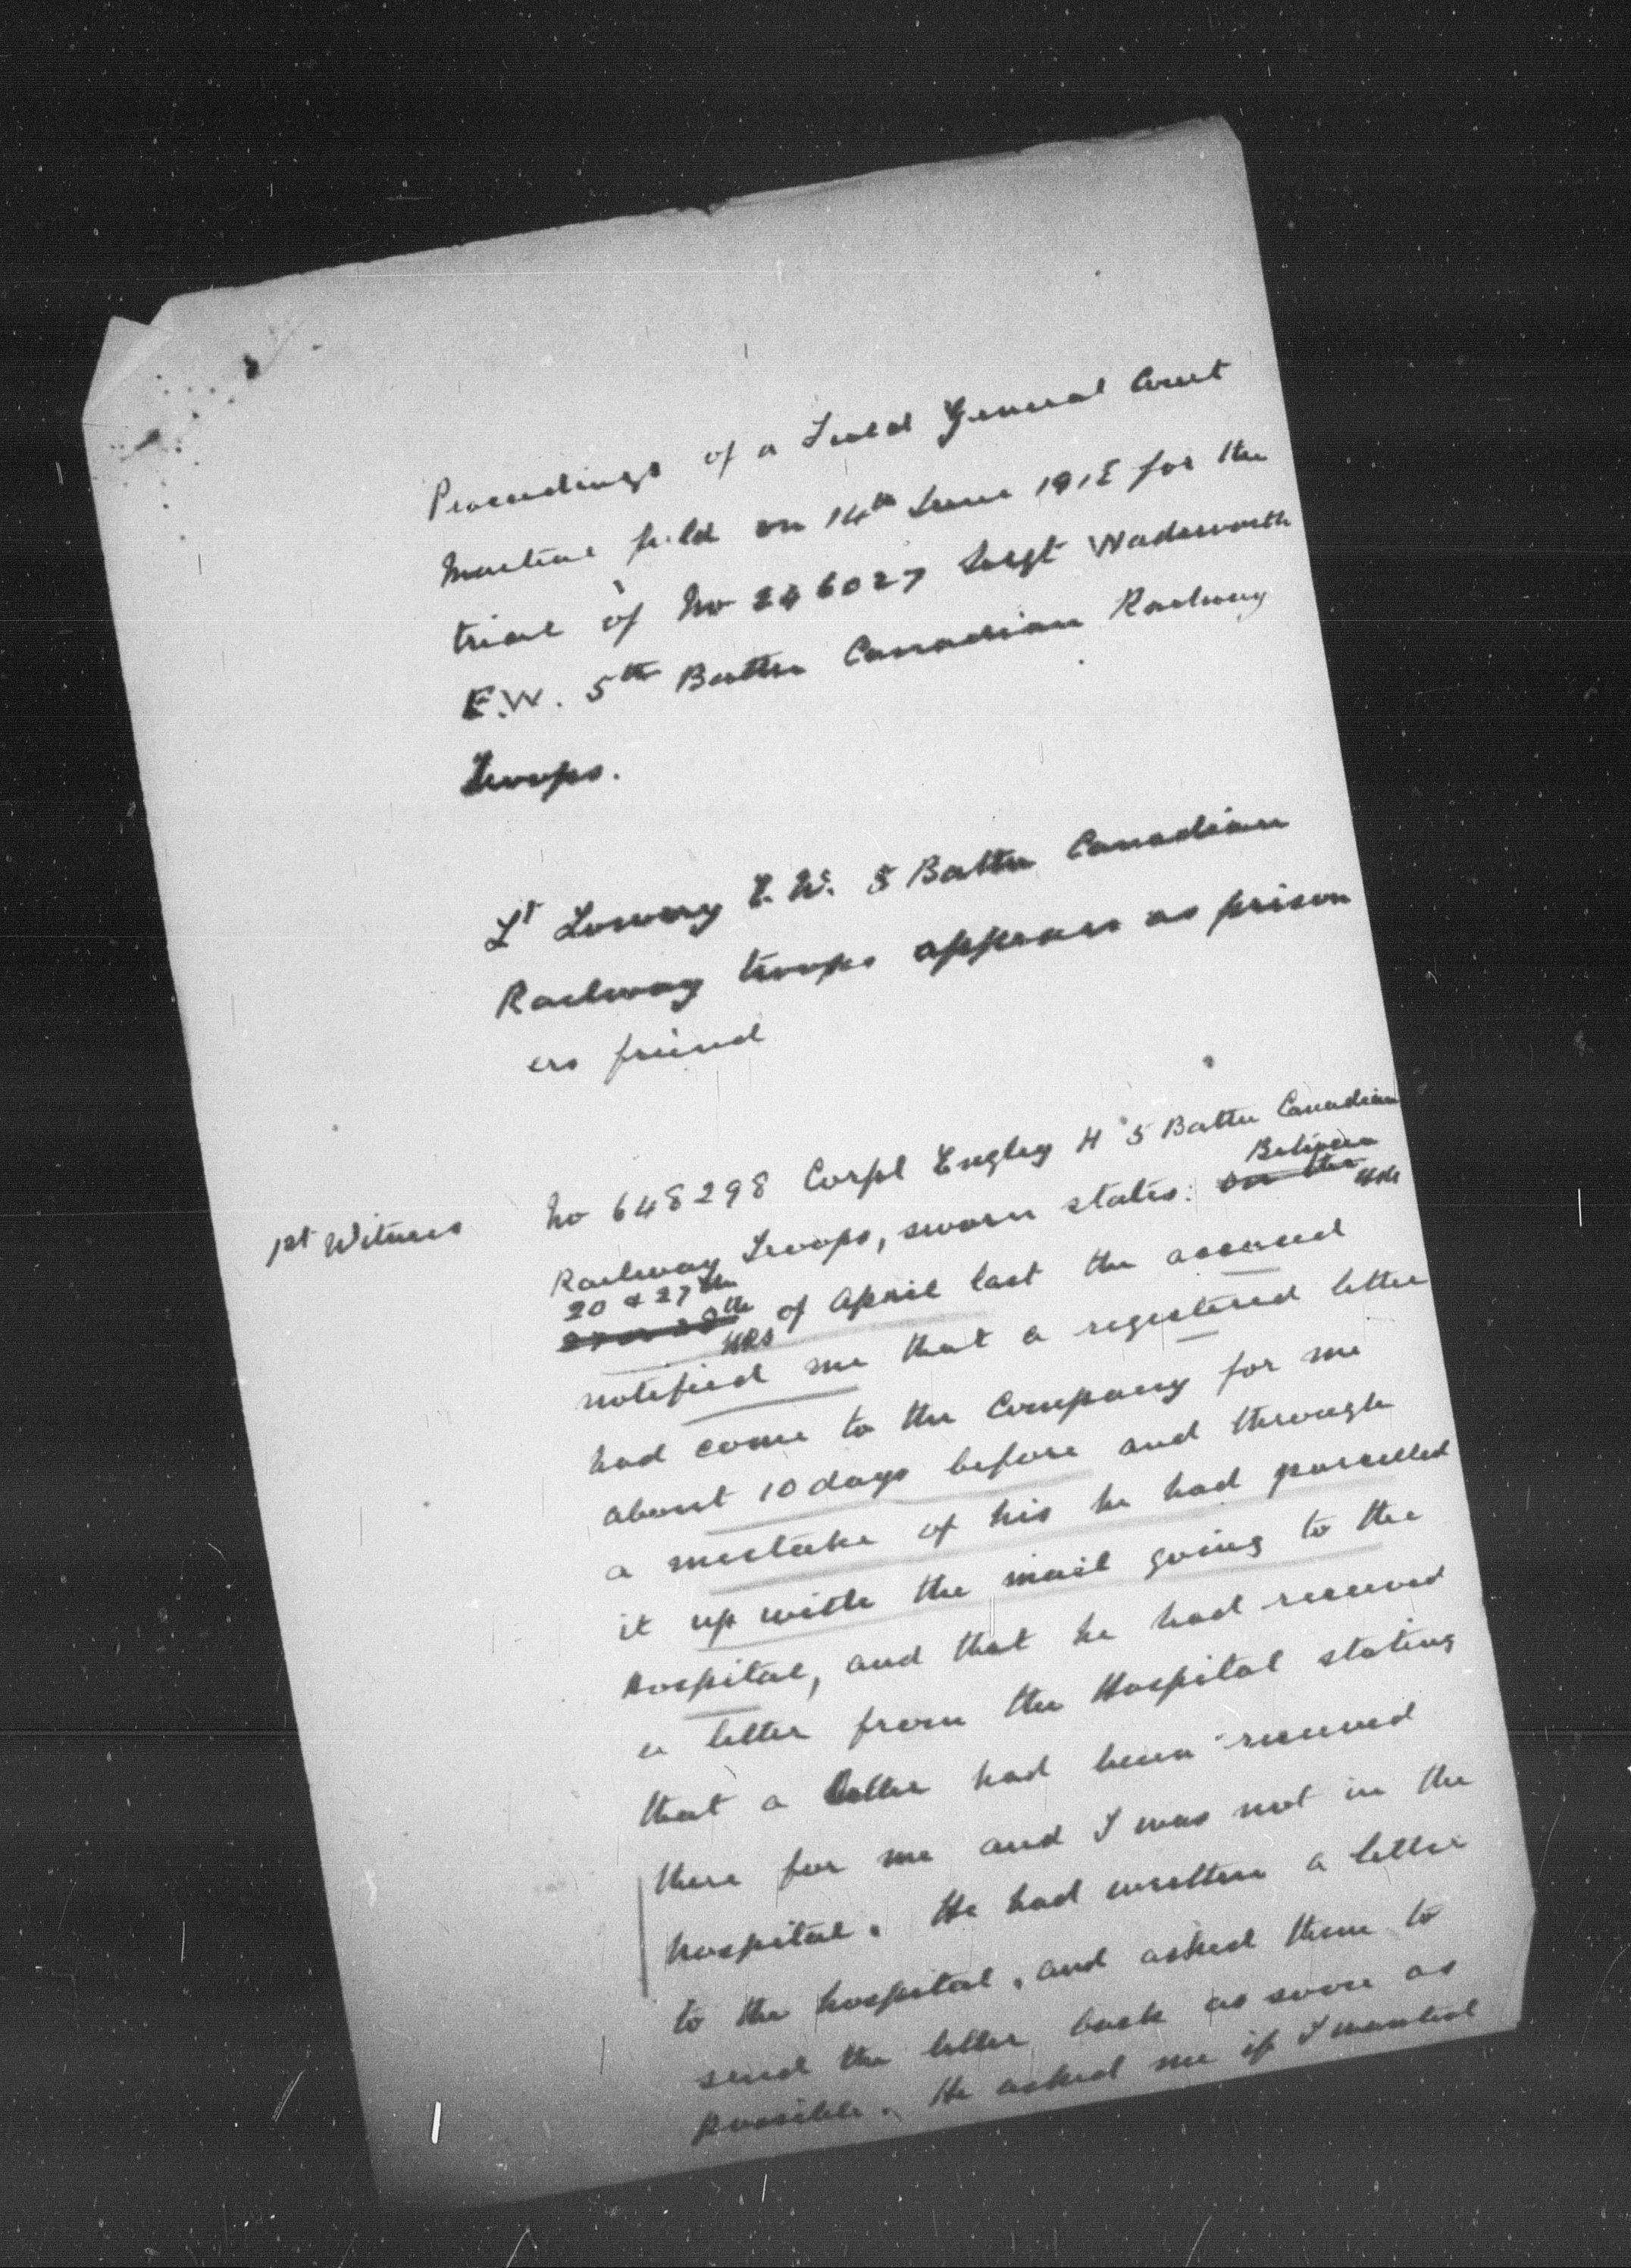 Proceedings of a Field General Court
Martial held on 14th June 1918 for the
trial of No 246027 Sergt Wadsworth
E.W. 5th Battn Canadian Railway
Troops.
Lt Lowery E.W. 5 Battn Canadian
Railway troops appears as prison
ers friend
1st Witness
No 648298 Corpl Engley H 5 Battn Canadian
Between
Railway Troops, sworn states: on the
20 & 27th
27 or 28th of April last the accused
notified me that a registered letter
had come to the Company for me
about 10 days before and through
a mistake of his he had parcelled
it up with the mail going to the
hospital, and that he had received
a letter from the Hospital stating
that a letter had been received
there for me and I was not in the
hospital. He had written a letter
to the hospital, and asked them to
send the letter back as soon as
possible. He asked me if I wanted